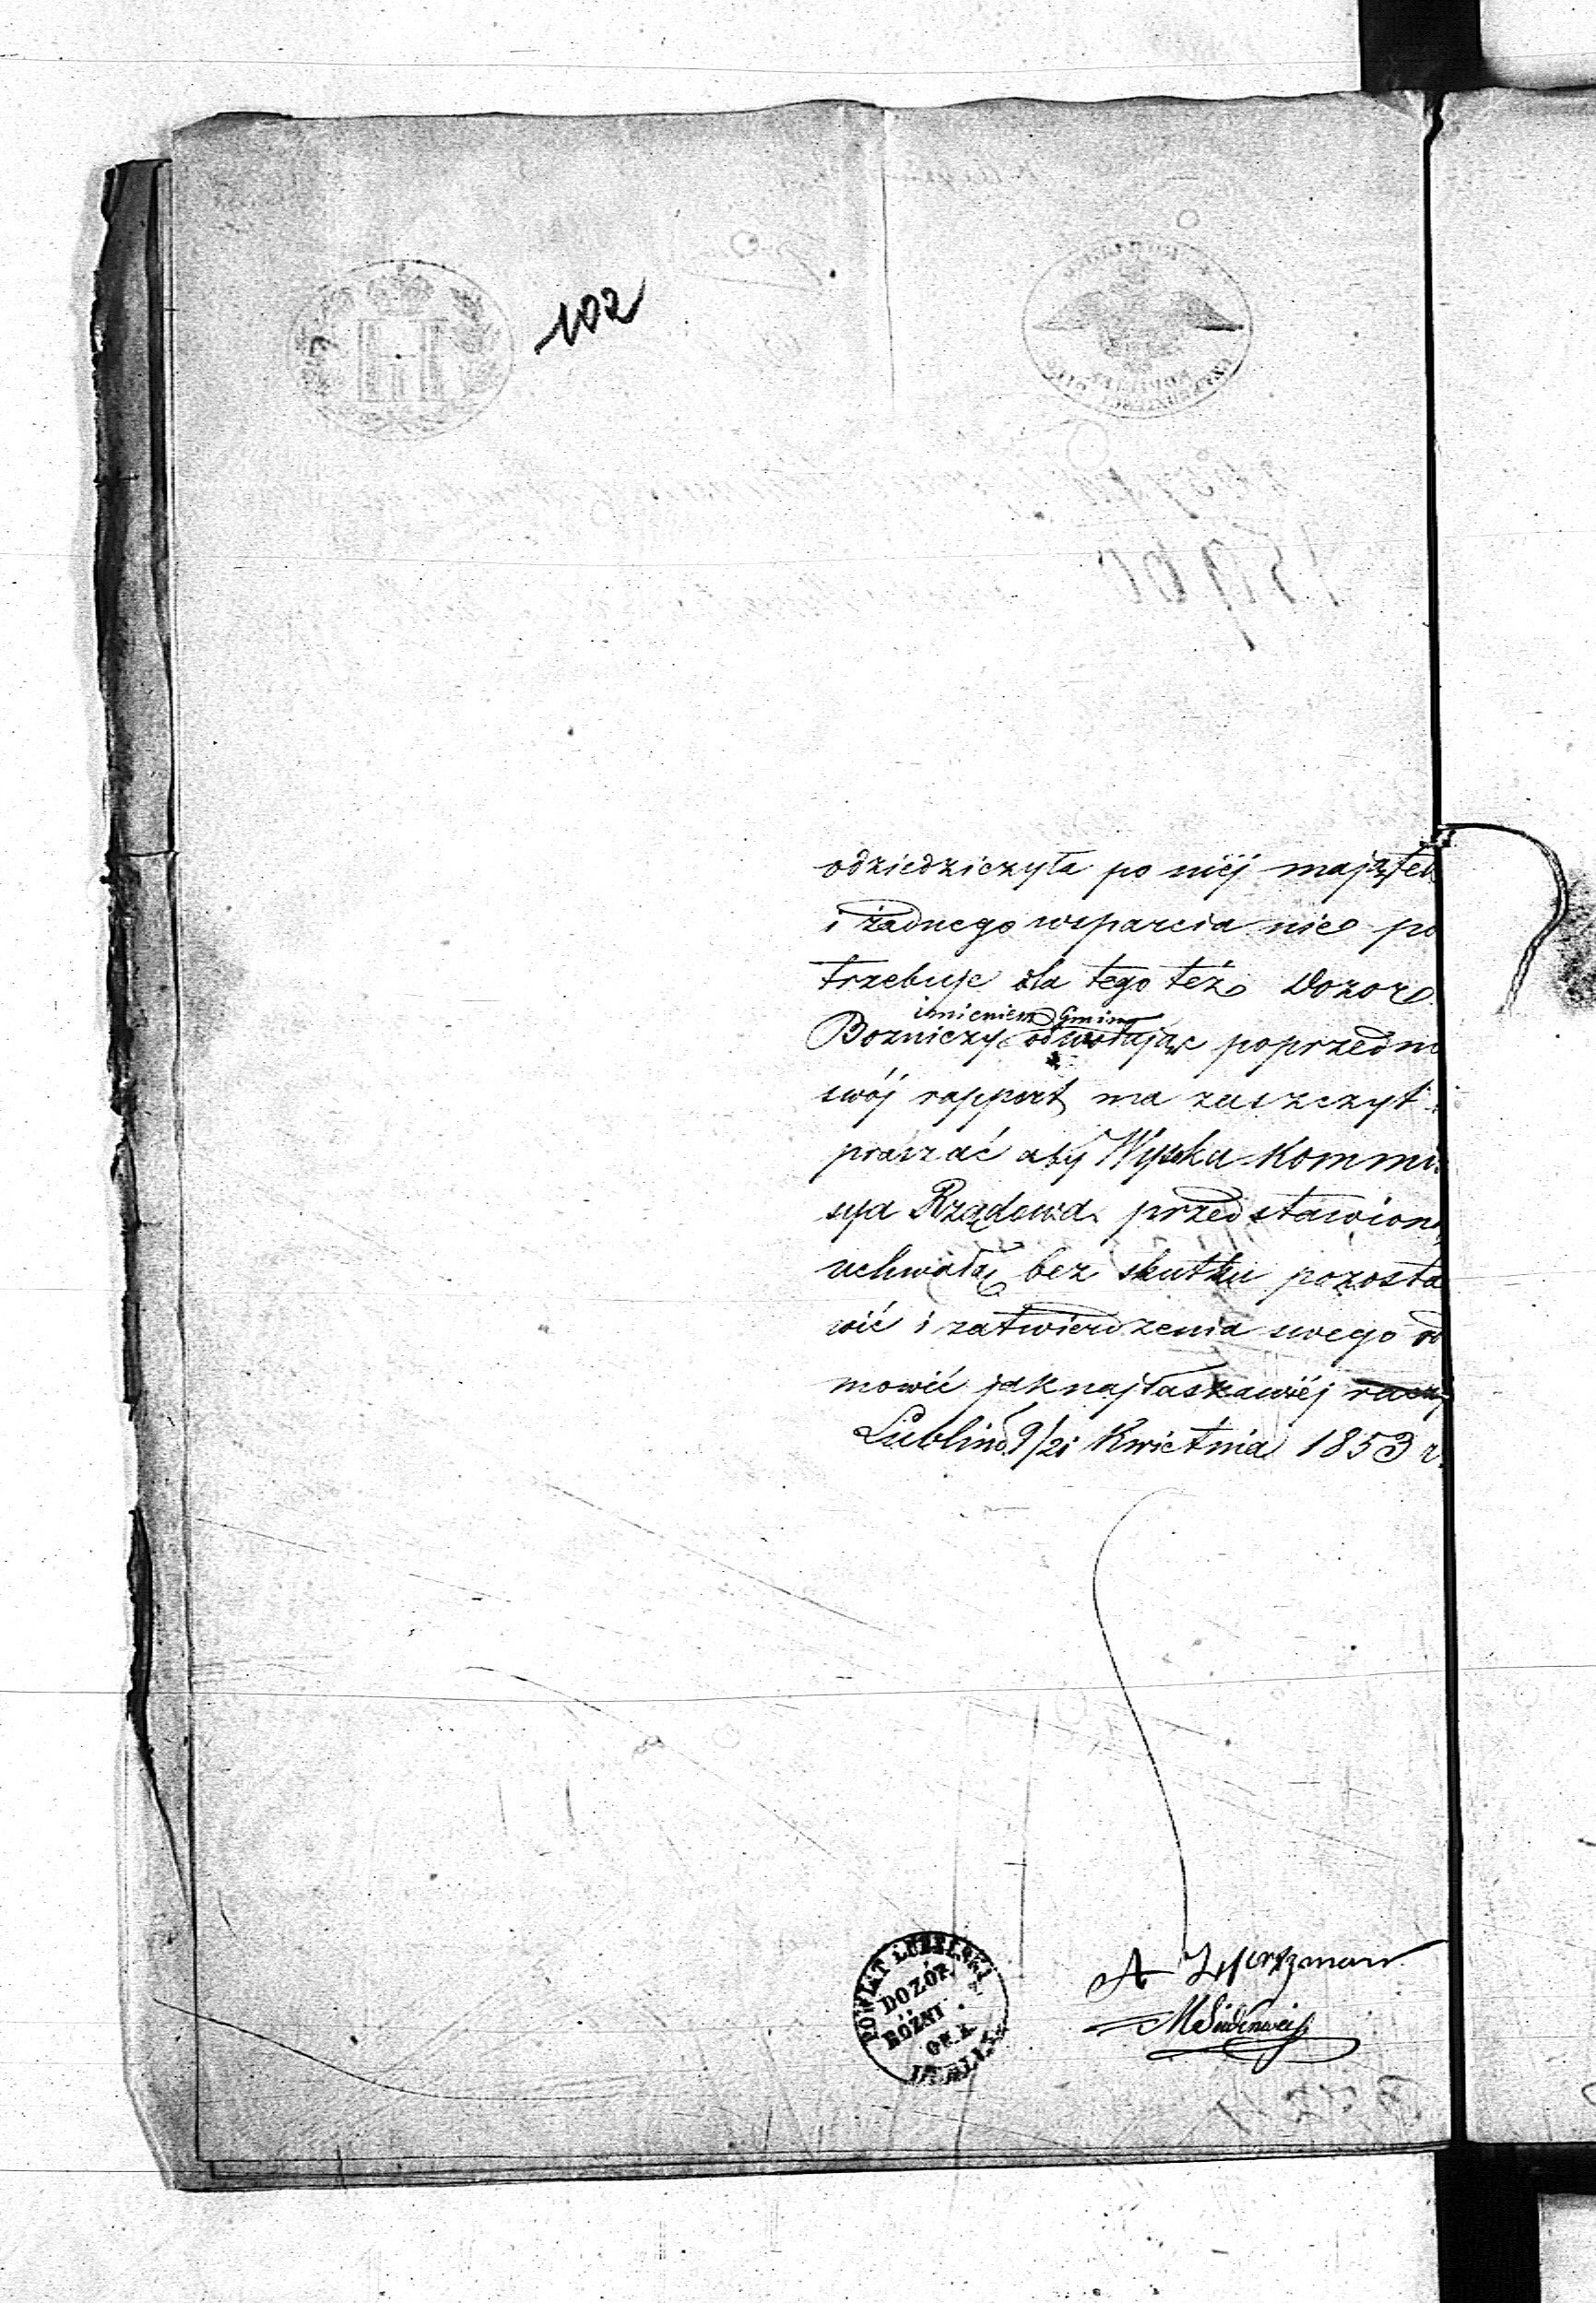 102
odziedziczyła po niéj majątek
i żadnego wsparcia nie po
trzebuje dla tego też Dozor
imieniem Gminy
Bozniczy odwołując poprzedni
swój rapport ma zaszczyt
praszać aby Wysoka Kommi
sya Rządowa przedstawioną
uchwałę bez skutku pozosta
wić i zatwierdzenia swego od
mowić jaknajłaskawiéj raczy
Lublin d 9/21 Kwietnia 1853 r.
POWIAT LUBELSKI
DOZÓR
BÓŻNI
OKR.
LUBLIN
A
M